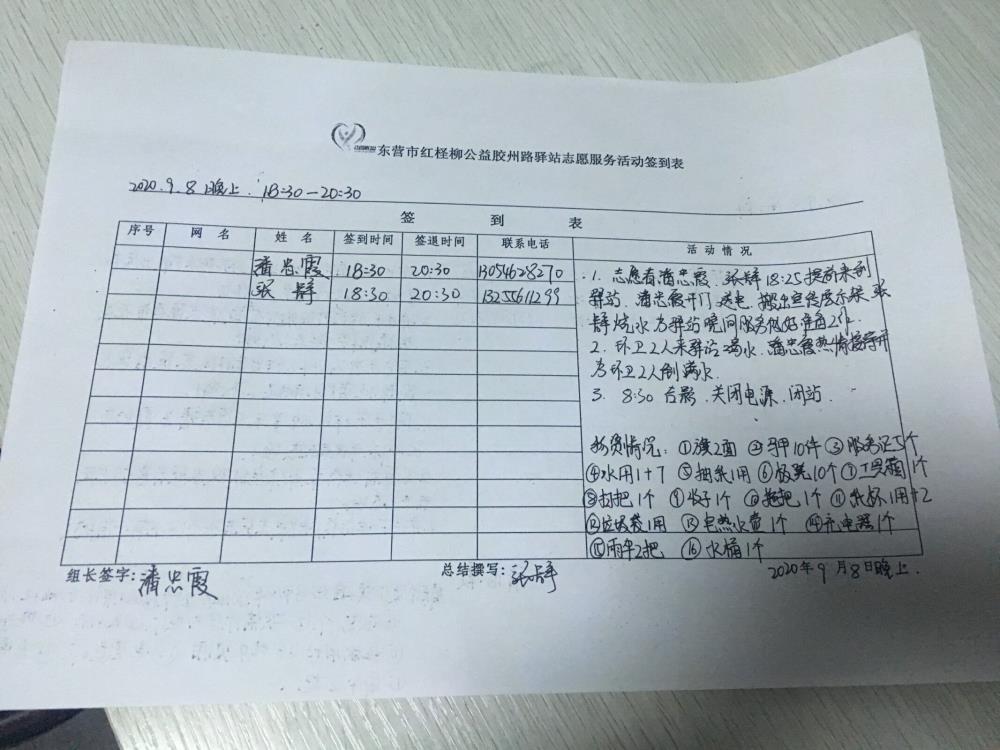 东营市红柽柳公益胶州路驿站志愿服务活动签到表
2020.9.8日晚上. 18:30—20:30
签 到 表
序号 网 名 姓 名 签到时间 签退时间 联系电话 活 动 情 况
潘忠霞 18:30 20:30 13054628270
张 18:30 20:30 13255611299
1. 志愿者潘忠霞、张 18:25提前来到
驿站.潘忠霞开门送电.搬出宣传展示架.张
烧水为驿站晚间服务做好准备工作.
2. 环卫2人来驿站喝水.潘忠霞热情接待并
为环卫2人倒满水.
3. 8:30 关闭电源.闭站.
物资情况: ①旗2面 ②马甲10件 ③服务记5个
④水用1+7 ⑤抽纸1用 ⑥板凳10个⑦工具箱1个
⑧扫把1个 ⑨ 1个 ⑩拖把1个 ⑪纸杯1用+2
⑫垃圾袋1用 ⑬电热水壶1个 ⑭充电器1个
⑮雨伞2把 ⑯水桶1个
组长签字: 潘忠霞 总结撰写: 张 2020年9月8日晚上.